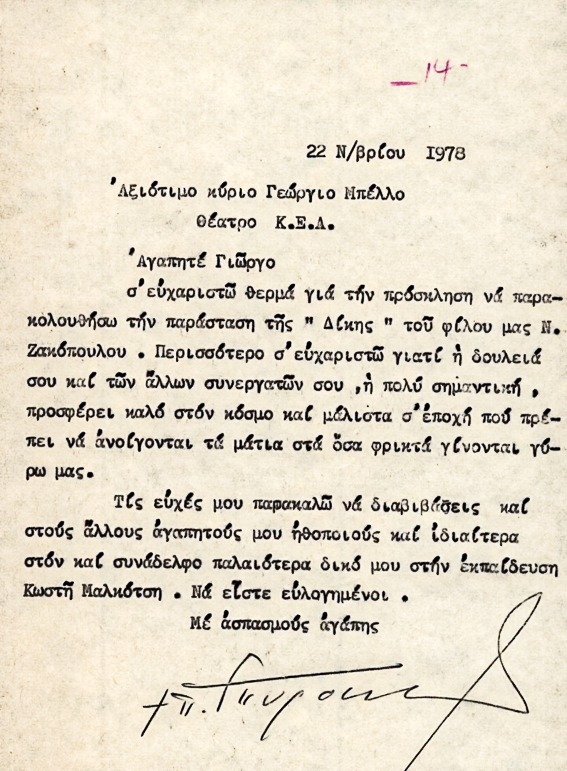 -14-
22 Ν/βρίου 1978
Ἀξιότιμο κύριο Γεώργιο Μπέλλο
Θέατρο Κ.Ε.Α.
Ἀγαπητέ Γιῶργο
σ'εὐχαριστῶ θερμά γιά τήν πρόσκληση νά παρα-
κολουθήσω τήν παράσταση τῆς " Δίκης " τοῦ φίλου μας Ν.
Ζακόπουλου . Περισσότερο σ'εὐχαριστῶ γιατί ἡ δουλειά
σου καί τῶν ἄλλων συνεργατῶν σου ,ἡ πολύ σημαντική ,
προσφέρει καλό στόν κόσμο καί μάλιστα σ'ἐποχή πού πρέ-
πει νά ἀνοίγονται τά μάτια στά ὅσα φρικτά γίνονται γύ-
ρω μας.
Τίς εὐχές μου παρακαλῶ νά διαβιβάσεις καί
στούς ἄλλους ἀγαπητούς μου ἠθοποιούς καί ἰδιαίτερα
στόν καί συνάδελφο παλαιότερα δικό μου στήν ἐκπαίδευση
Κωστῆ Μαλκότση . Νά εἶστε εὐλογημένοι .
Μέ ἀσπασμούς ἀγάπης